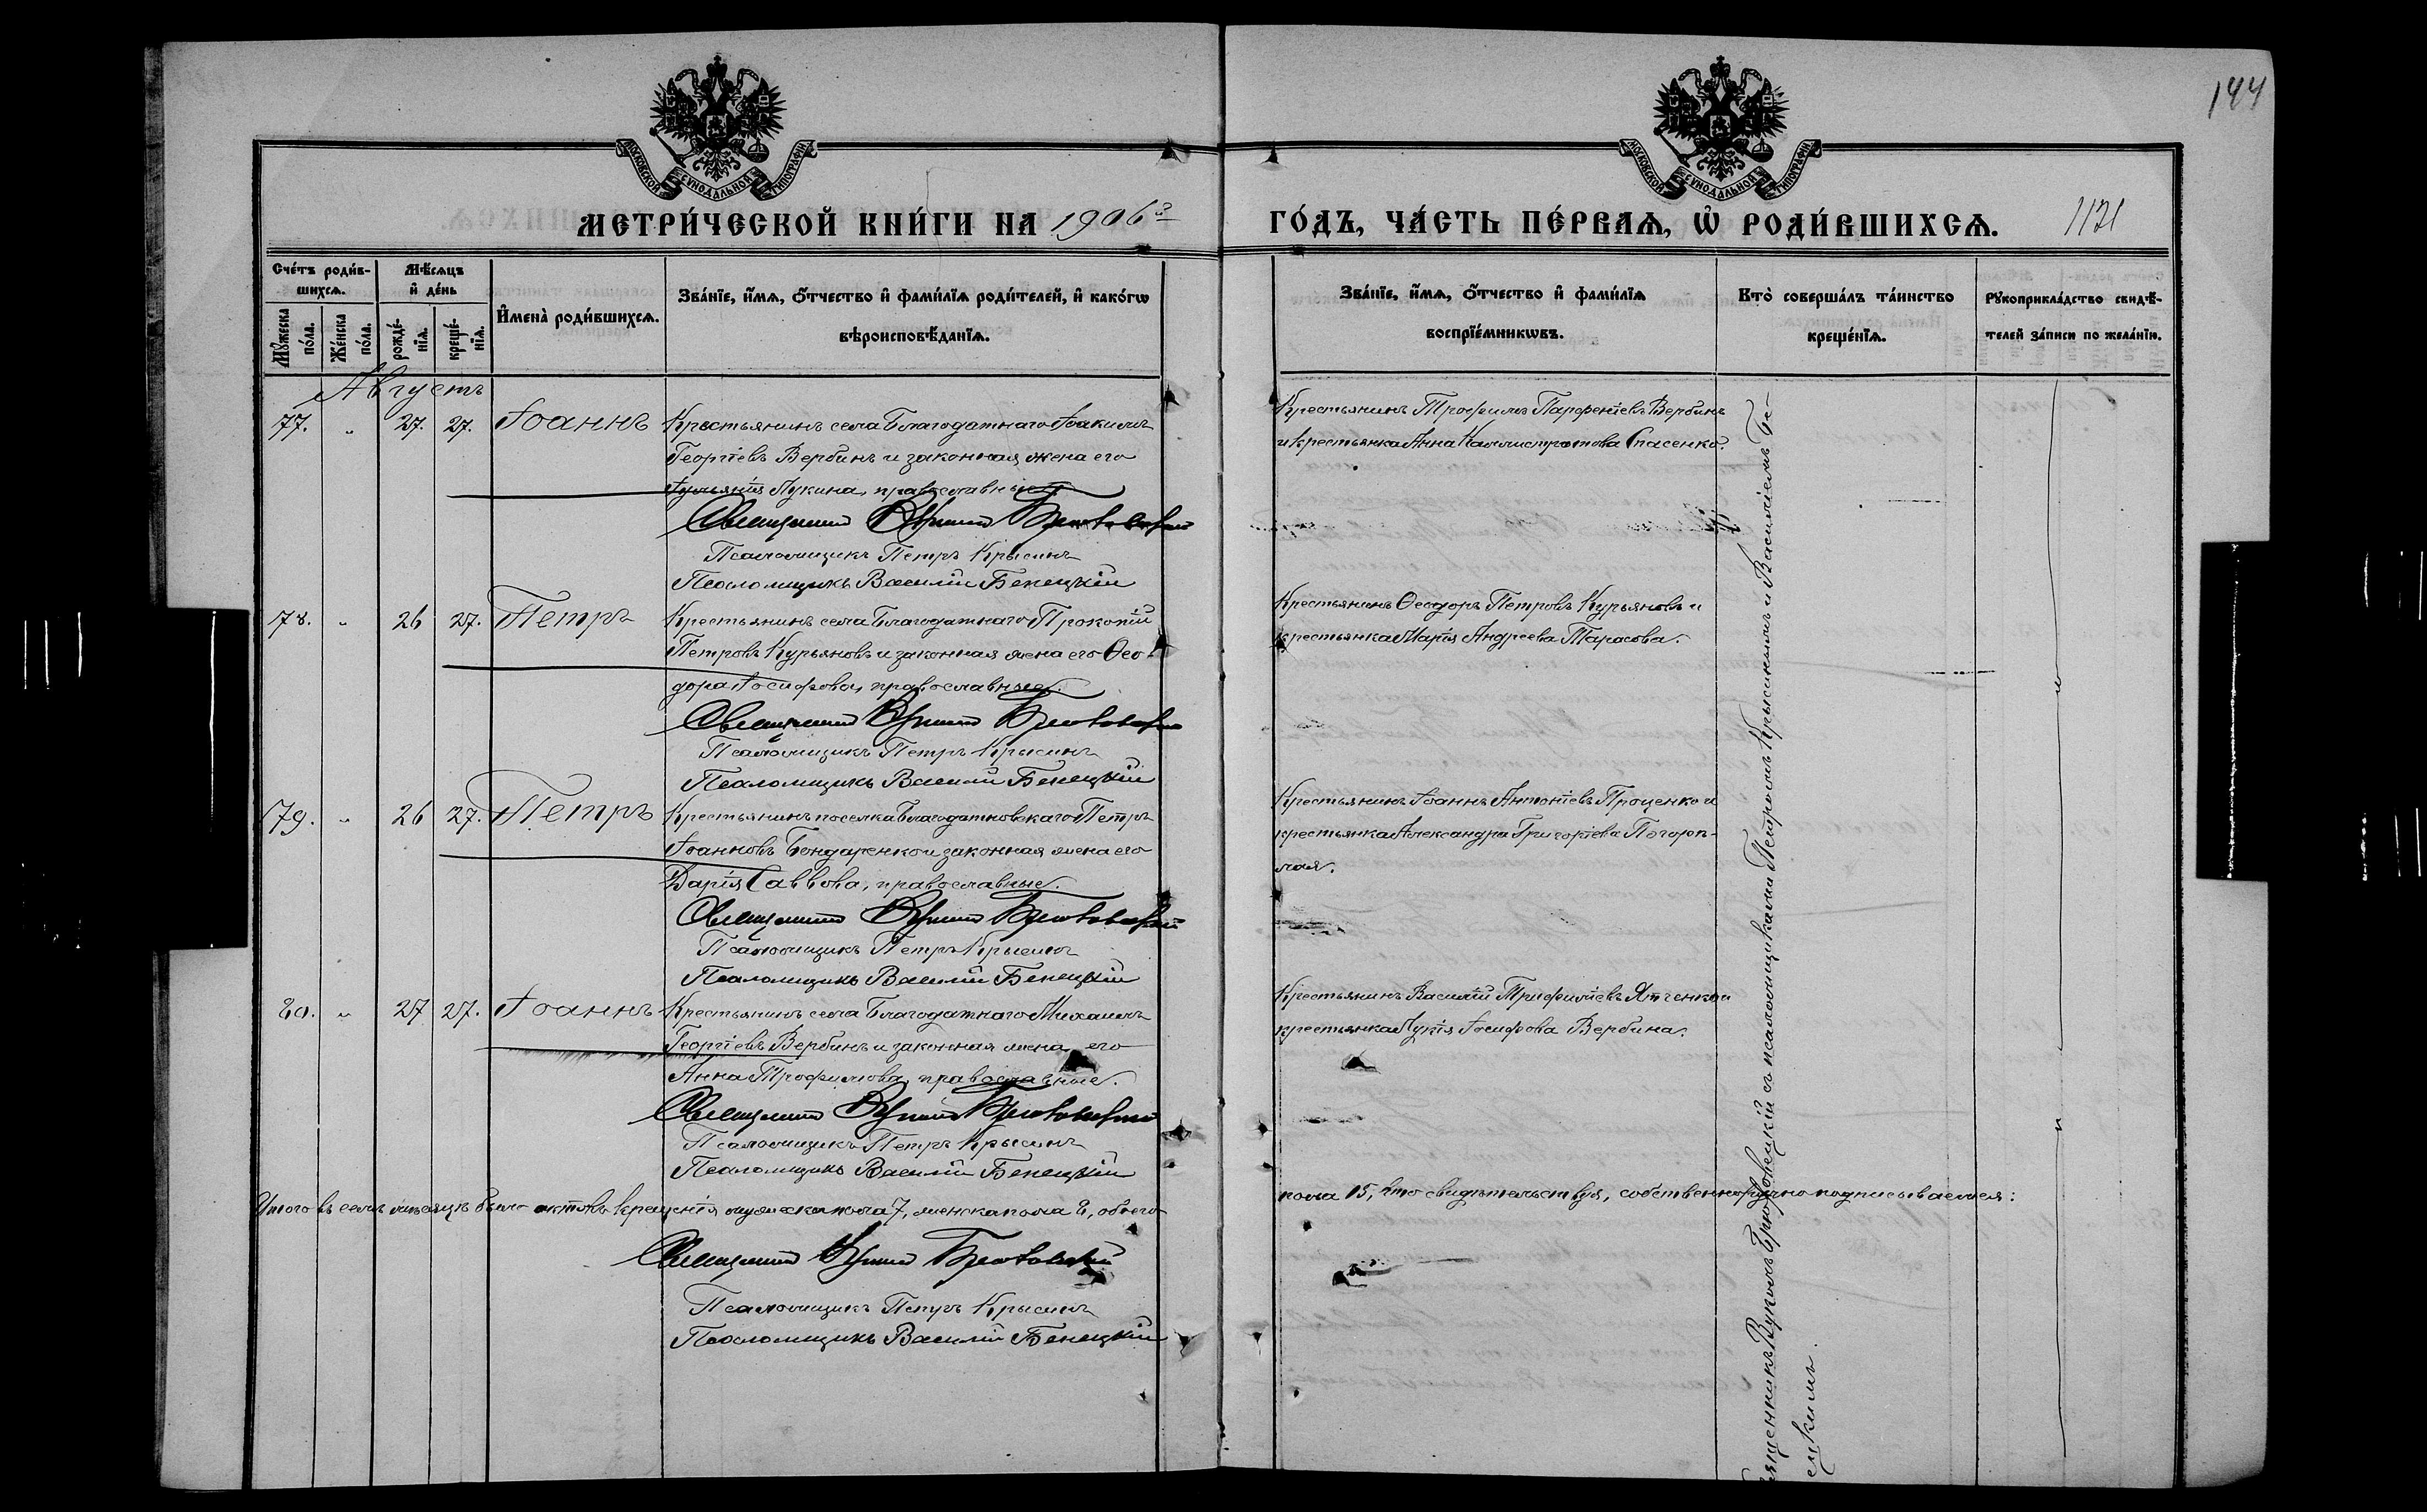 144
МОСКОВСКОЙ СУНОДАЛЬНОЙ ТИПОГРАФІИ
МОСКОВСКОЙ СУНОДАЛЬНОЙ ТИПОГРАФІИ
МЕТРИ́ЧЕСКОЙ КНИ́ГИ НА 1906 й
ГО́ДЪ, ЧА́СТЬ ПЕ́РВАѦ, Ѡ҆ РОДИ́ВШИХСѦ. 1121
Сче́тъ роди́в-
шихсѧ.
Мꙋ́жеска по́ла.
Же́нска по́ла.
Мѣ́сѧцъ
и҆ де́нь
рожде́-
нїѧ.
креще́-
нїѧ.
И҆мена̀ роди́вшихсѧ.
Зва́нїе, и҆́мѧ, ѻ҆́тчество и҆ фами́лїѧ роди́телей, и҆ како́гѡ
вѣроисповѣ́данїѧ.
Зва́нїе, и҆́мѧ, ѻ҆́тчество и҆ фами́лїѧ
воспрїе́мникѡвъ.
Кто̀ соверша́лъ та́инство
креще́нїѧ.
Рꙋкоприкла́дство свидѣ́-
телей за́писи по жела́нїю.
Августъ
77. „ 27. 27. Іоаннъ
Крестьянинъ села Благодатнаго Іоакимъ
Георгіевъ Вербинъ и законная жена его
Іуліанія Лукина, православные
Священникъ Вукол Брюховецкій
Псаломщикъ Петръ Крысинъ
Псаломщикъ Василій Бенецкій
Крестьянинъ Трофимъ Парфеніевъ Вербинъ
и крестьянка Анна Каллистратова Спасенко.
78. „ 26 27. Петръ
Крестьянинъ села Благодатнаго Прокопій
Петровъ Курьяновъ и законная жена его Ѳео-
дора Іосифова, православные.
Священникъ Вукол Брюховецкій
Псаломщикъ Петръ Крысинъ
Псаломщикъ Василій Бенецкій
Крестьянинъ Ѳеодоръ Петровъ Курьяновъ и
крестьянка Марія Андреева Тарасова.
79. „ 26 27. Петръ
Крестьянинъ поселка Благодатновскаго Петръ
Іоанновъ Бондаренко и законная жена его
Дарія Саввова, православные.
Священникъ Вукол Брюховецкій
Псаломщикъ Петръ Крысинъ
Псаломщикъ Василій Бенецкій
Крестьянинъ Іоаннъ Антоніевъ Проценко и
крестьянка Александра Григоріева Погорѣ-
лая.
80. „ 27 27. Іоаннъ
Крестьянинъ села Благодатнаго Михаилъ
Георгіевъ Вербинъ и законная жена его
Анна Трофимова, православные.
Священникъ Вукол Брюховецкій
Псаломщикъ Петръ Крысинъ
Псаломщикъ Василій Бенецкій
Крестьянинъ Василій Трифиліевъ Ятченко и
крестьянка Лукія Іосифова Вербина.
Священникъ Вуколъ Брюховецкій съ псаломщиками Петромъ Крысинымъ и Василіемъ Бе-
нецкимъ.
Итого въ семъ мѣсяцѣ было актовъ крещенія мужеска пола 7, женска пола 8, обоего
пола 15, что свидѣтельствуя, собственноручно подписываемся:
Священникъ Вукол Брюховецкій
Псаломщикъ Петръ Крысинъ
Псаломщикъ Василій Бенецкій